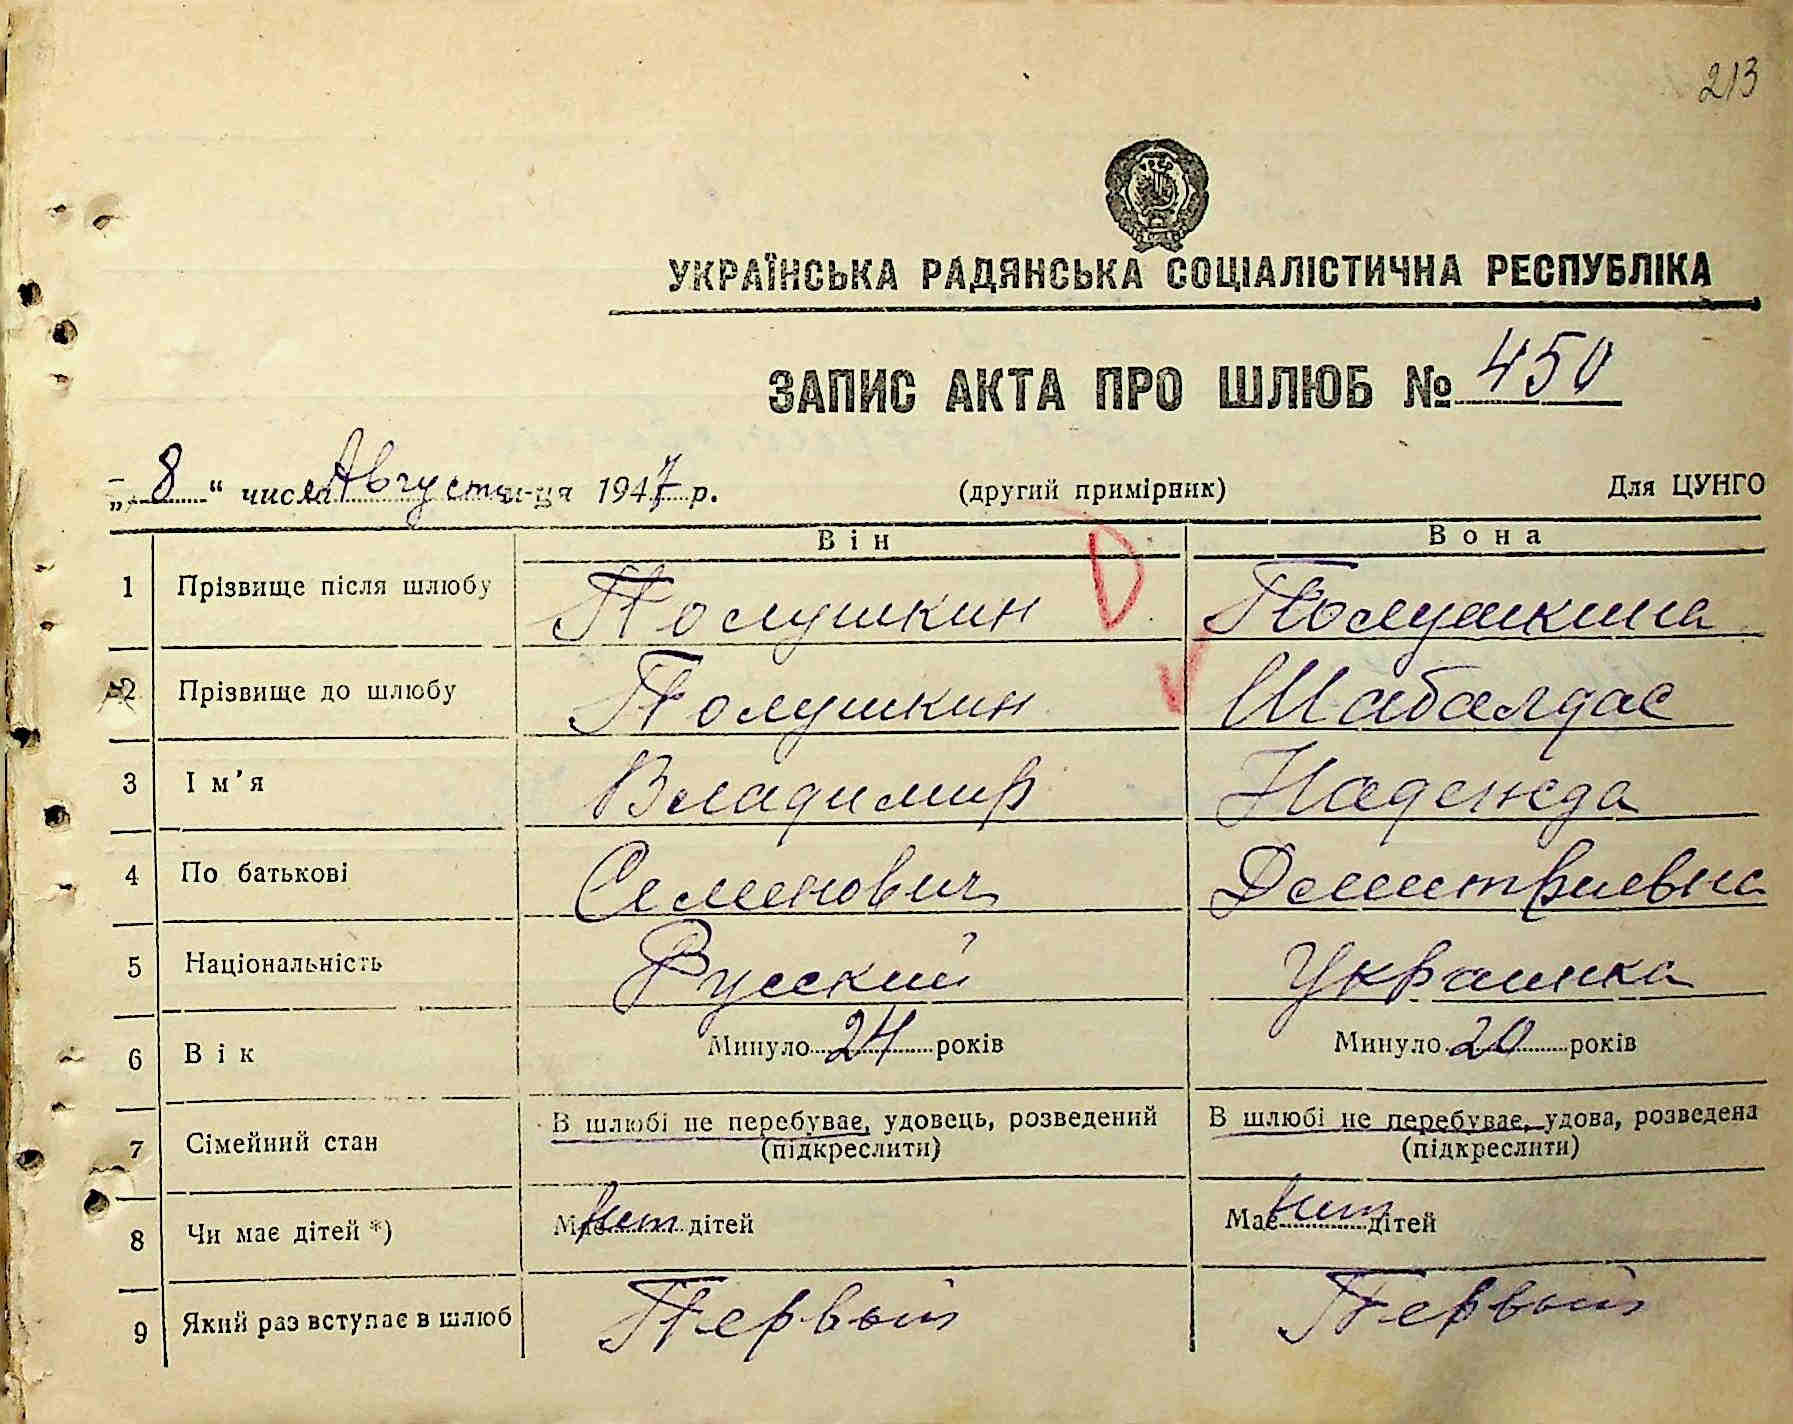 213
УКРАЇНСЬКА РАДЯНСЬКА СОЦІАЛІСТИЧНА РЕСПУБЛІКА
ЗАПИС АКТА ПРО ШЛЮБ № 450
„ 8 “ числа Августа м-ця 1947 р. (другий примірник) Для ЦУНГО
Він Вона
1 Прізвище після шлюбу Полушкин Полушкина
2 Прізвище до шлюбу Полушкин Шабалдас
3 Ім’я Владимир Надежда
4 По батькові Семенович Дмитриевна
5 Національність Русский Украинка
6 Вік Минуло 24 років Минуло 20 років
7 Сімейний стан В шлюбі не перебуває, удовець, розведений В шлюбі не перебуває, удова, розведена
(підкреслити) (підкреслити)
8 Чи має дітей *) Має нет дітей Має нет дітей
9 Який раз вступає в шлюб Первый Первый